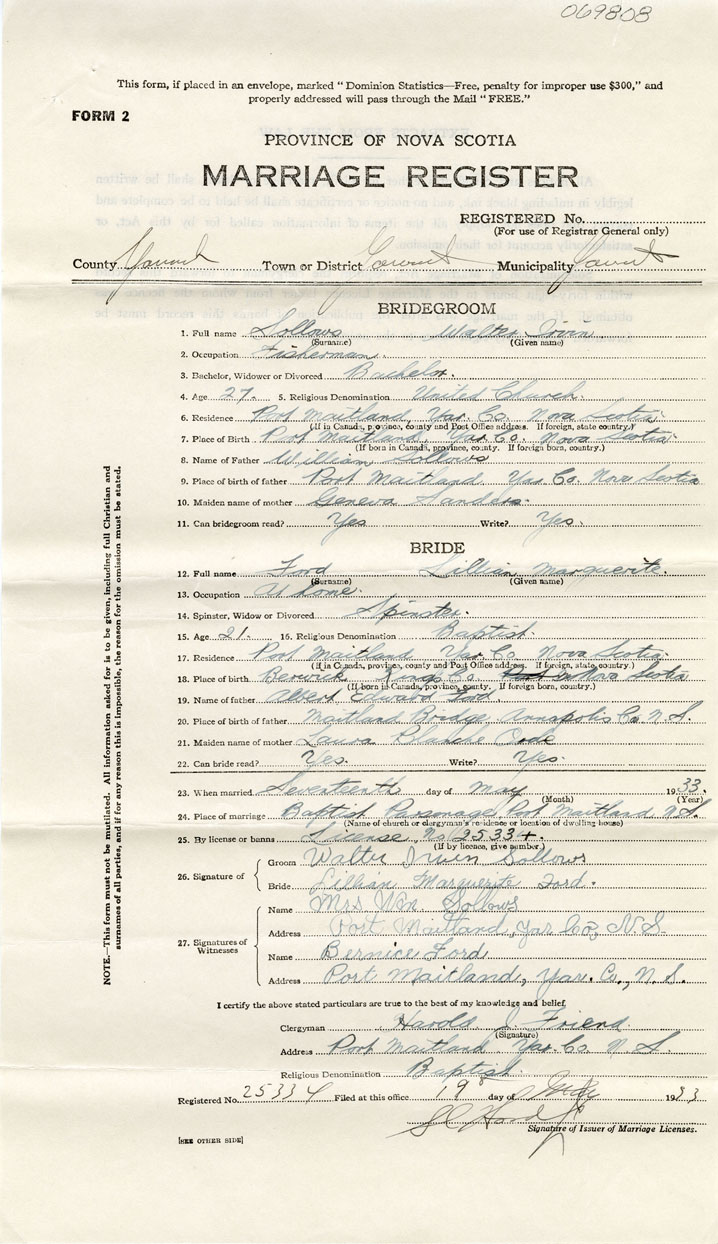 069808
This form, if placed in an envelope, marked "Dominion Statistics—Free, penalty for improper use $300," and
properly addressed will pass through the Mail "FREE."
FORM 2
PROVINCE OF NOVA SCOTIA
MARRIAGE REGISTER
REGISTERED No.
(For use of Registrar General only)
County Yarmouth Town or District Yarmouth Municipality Yarmouth
BRIDEGROOM
1. Full name Sollows Walter Irvin
(Surname) (Given name)
2. Occupation Fisherman.
3. Bachelor, Widower or Divorced Bachelor.
4. Age 27. 5. Religious Denomination United Church.
6. Residence Port Maitland, Yar. Co. Nova Scotia.
(If in Canada, province, county and Post Office address. If foreign, state country.)
7. Place of Birth Port Maitland, Yar. Co. Nova Scotia.
(If born in Canada, province, county. If foreign born, country.)
8. Name of Father William Sollows
9. Place of birth of father Port Maitland Yar. Co. Nova Scotia
10. Maiden name of mother Geneva Sanders.
11. Can bridegroom read? Yes Write? Yes.
BRIDE
12. Full name Ford Lillian Marguerite.
(Surname) (Given name)
13. Occupation At home.
14. Spinster, Widow or Divorced Spinster.
15. Age 21. 16. Religious Denomination Baptist.
17. Residence Port Maitland Yar. Co. Nova Scotia.
(If in Canada, province, county and Post Office address. If foreign, state country.)
18. Place of birth Berwick Kings Co. Nova Scotia
(If born in Canada, province, county. If foreign born, country.)
19. Name of father Albert Edward Ford.
20. Place of birth of father Maitland Bridge, Annapolis Co. N.S.
21. Maiden name of mother Laura Blanche
22. Can bride read? Yes. Write? Yes.
23. When married Seventeenth day of May 1933.
(Month) (Year)
24. Place of marriage Baptist Parsonage, Port Maitland N.S.
(Name of church or clergyman's residence or location of dwelling house)
25. By license or banns License No. 25334.
(If by licence, give number.)
26. Signature of
Groom Walter Irvin Sollows
Bride Lillian Marguerite Ford.
27. Signatures of Witnesses
Name Mrs Wm. Sollows
Address Port Maitland, Yar Co, N.S.
Name Bernice Ford
Address Port Maitland, Yar. Co., N.S.
I certify the above stated particulars are true to the best of my knowledge and belief.
Clergyman Harold J. Friend
(Signature)
Address Port Maitland Yar. Co. N.S.
Religious Denomination Baptist.
Registered No. 25334 Filed at this office 19 day of May 1933
Signature of Issuer of Marriage Licenses.
[SEE OTHER SIDE]
NOTE.—This form must not be mutilated. All information asked for is to be given, including full Christian and
surnames of all parties, and if for any reason this is impossible, the reason for the omission must be stated.